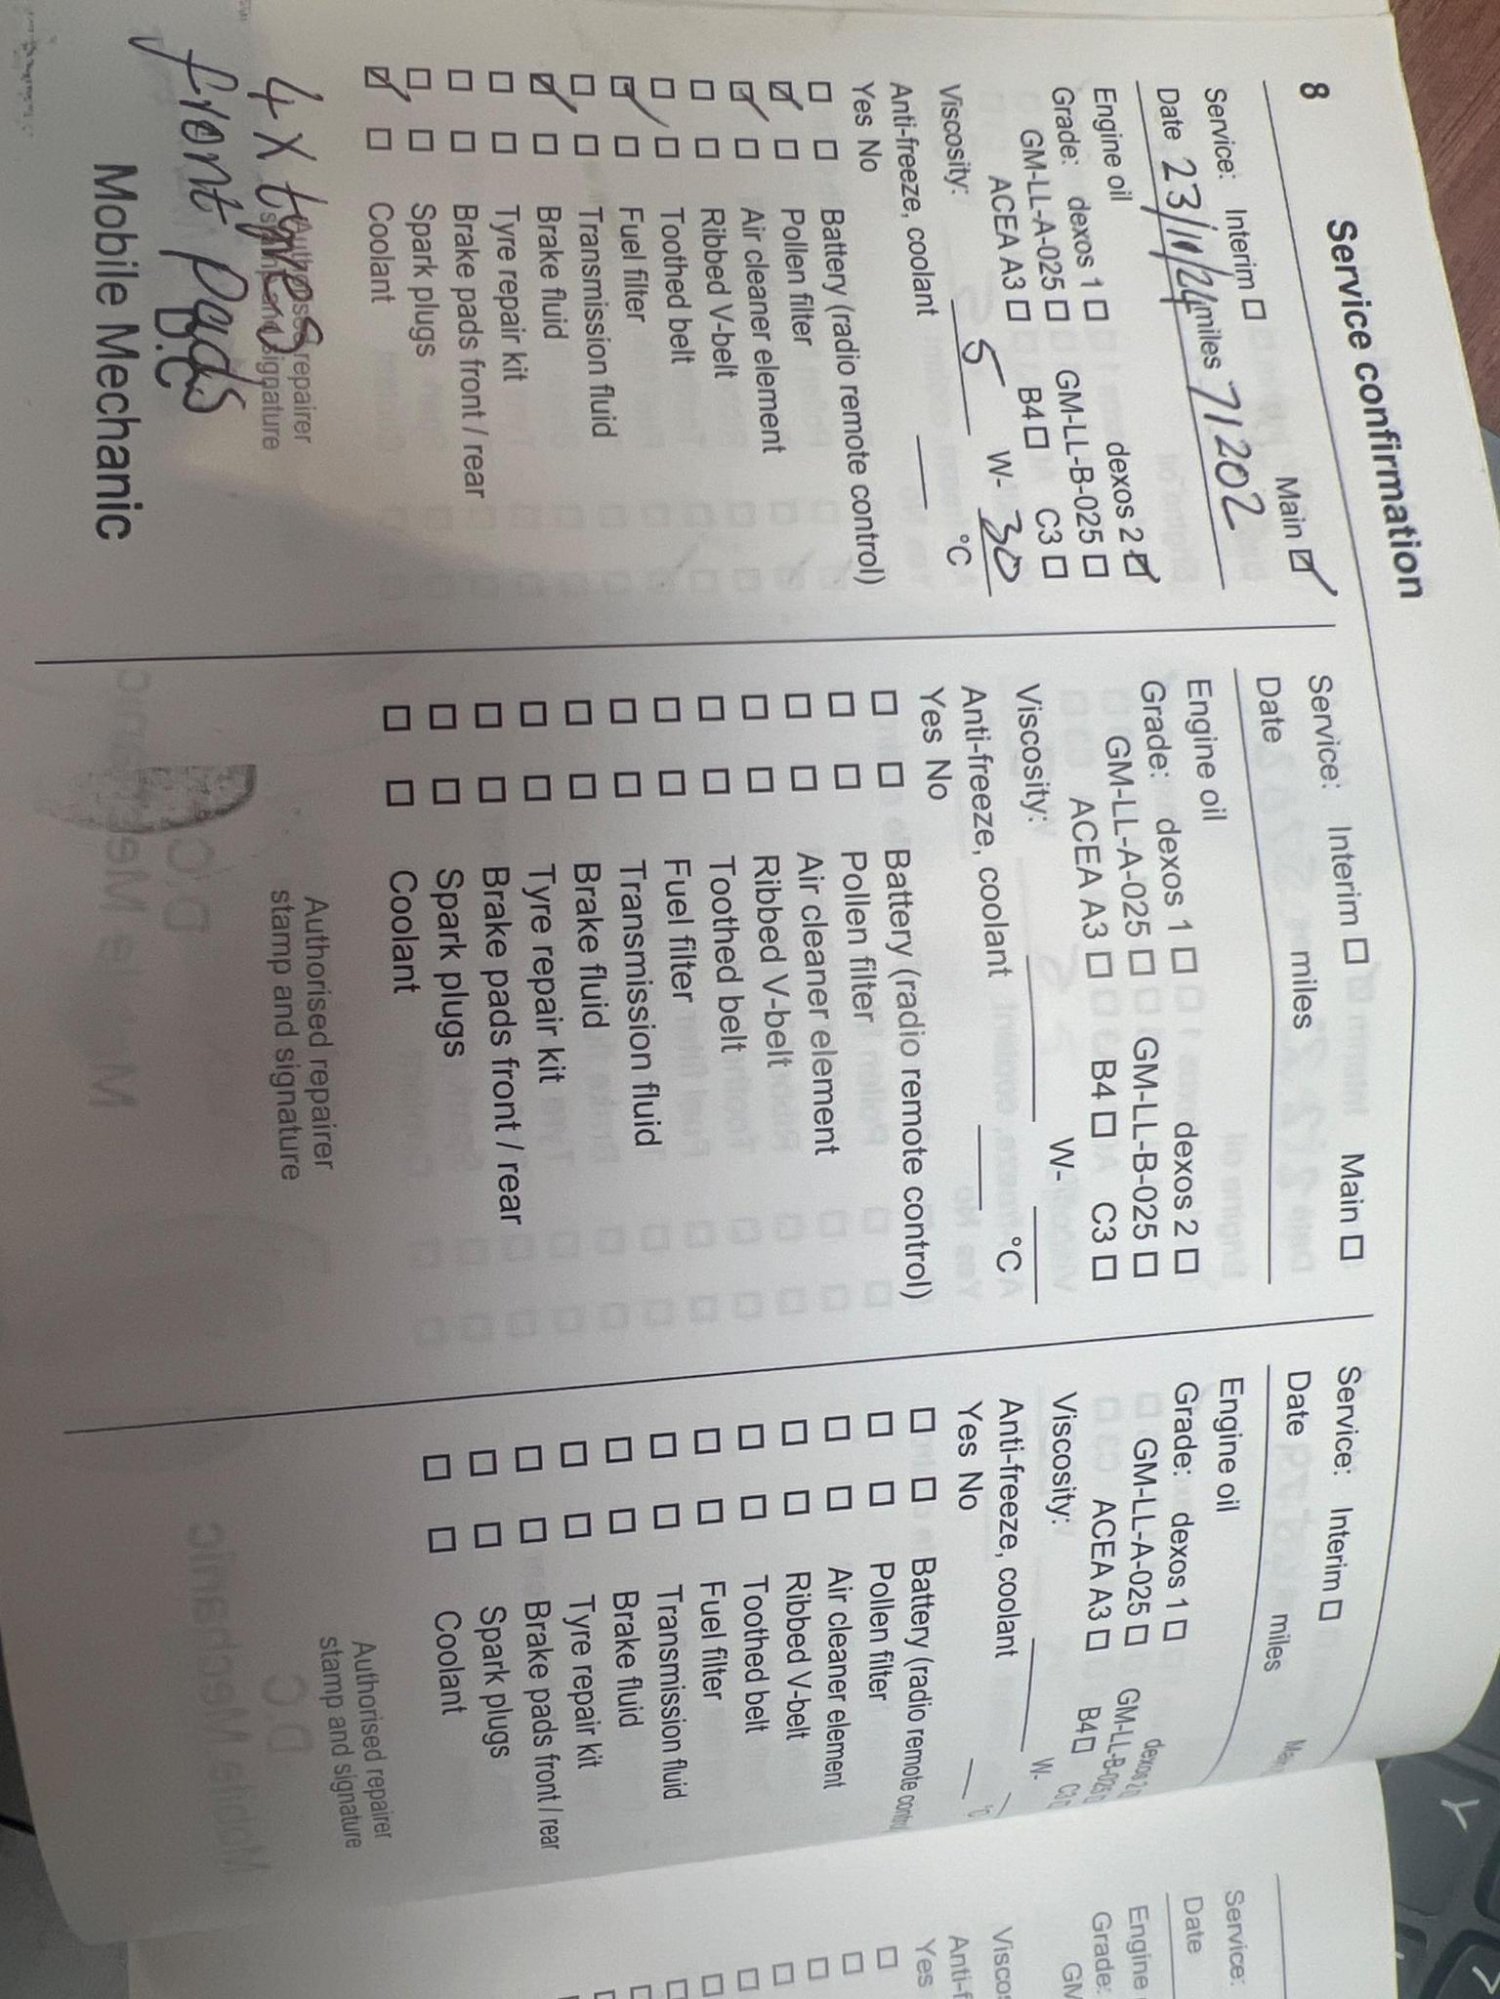 8
Service confirmation
Service: Interim ☐ Main ☑
Date 23/11/24 miles 71202
Engine oil
Grade: dexos 1 ☐ dexos 2 ☑
GM-LL-A-025 ☐ GM-LL-B-025 ☐
ACEA A3 ☐ B4 ☐ C3 ☐
Viscosity: 5 W- 30
Anti-freeze, coolant °C
Yes No
☐ ☐ Battery (radio remote control)
☑ ☐ Pollen filter
☑ ☐ Air cleaner element
☐ ☐ Ribbed V-belt
☐ ☐ Toothed belt
☑ ☐ Fuel filter
☐ ☐ Transmission fluid
☑ ☐ Brake fluid
☐ ☐ Tyre repair kit
☐ ☐ Brake pads front / rear
☐ ☐ Spark plugs
☑ ☐ Coolant
Authorised repairer
stamp and signature
4 X tyres
front pads
D.C
Mobile Mechanic
Service: Interim ☐ Main ☐
Date miles
Engine oil
Grade: dexos 1 ☐ dexos 2 ☐
GM-LL-A-025 ☐ GM-LL-B-025 ☐
ACEA A3 ☐ B4 ☐ C3 ☐
Viscosity: W-
Anti-freeze, coolant °C
Yes No
☐ ☐ Battery (radio remote control)
☐ ☐ Pollen filter
☐ ☐ Air cleaner element
☐ ☐ Ribbed V-belt
☐ ☐ Toothed belt
☐ ☐ Fuel filter
☐ ☐ Transmission fluid
☐ ☐ Brake fluid
☐ ☐ Tyre repair kit
☐ ☐ Brake pads front / rear
☐ ☐ Spark plugs
☐ ☐ Coolant
Authorised repairer
stamp and signature
Service: Interim ☐ Main
Date miles
Engine oil
Grade: dexos 1 ☐ dexos 2 ☐
GM-LL-A-025 ☐ GM-LL-B-025 ☐
ACEA A3 ☐ B4 ☐ C3 ☐
Viscosity: W-
Anti-freeze, coolant °C
Yes No
☐ ☐ Battery (radio remote control)
☐ ☐ Pollen filter
☐ ☐ Air cleaner element
☐ ☐ Ribbed V-belt
☐ ☐ Toothed belt
☐ ☐ Fuel filter
☐ ☐ Transmission fluid
☐ ☐ Brake fluid
☐ ☐ Tyre repair kit
☐ ☐ Brake pads front / rear
☐ ☐ Spark plugs
☐ ☐ Coolant
Authorised repairer
stamp and signature
Service:
Date
Engine
Grade:
GM
Yes
Y